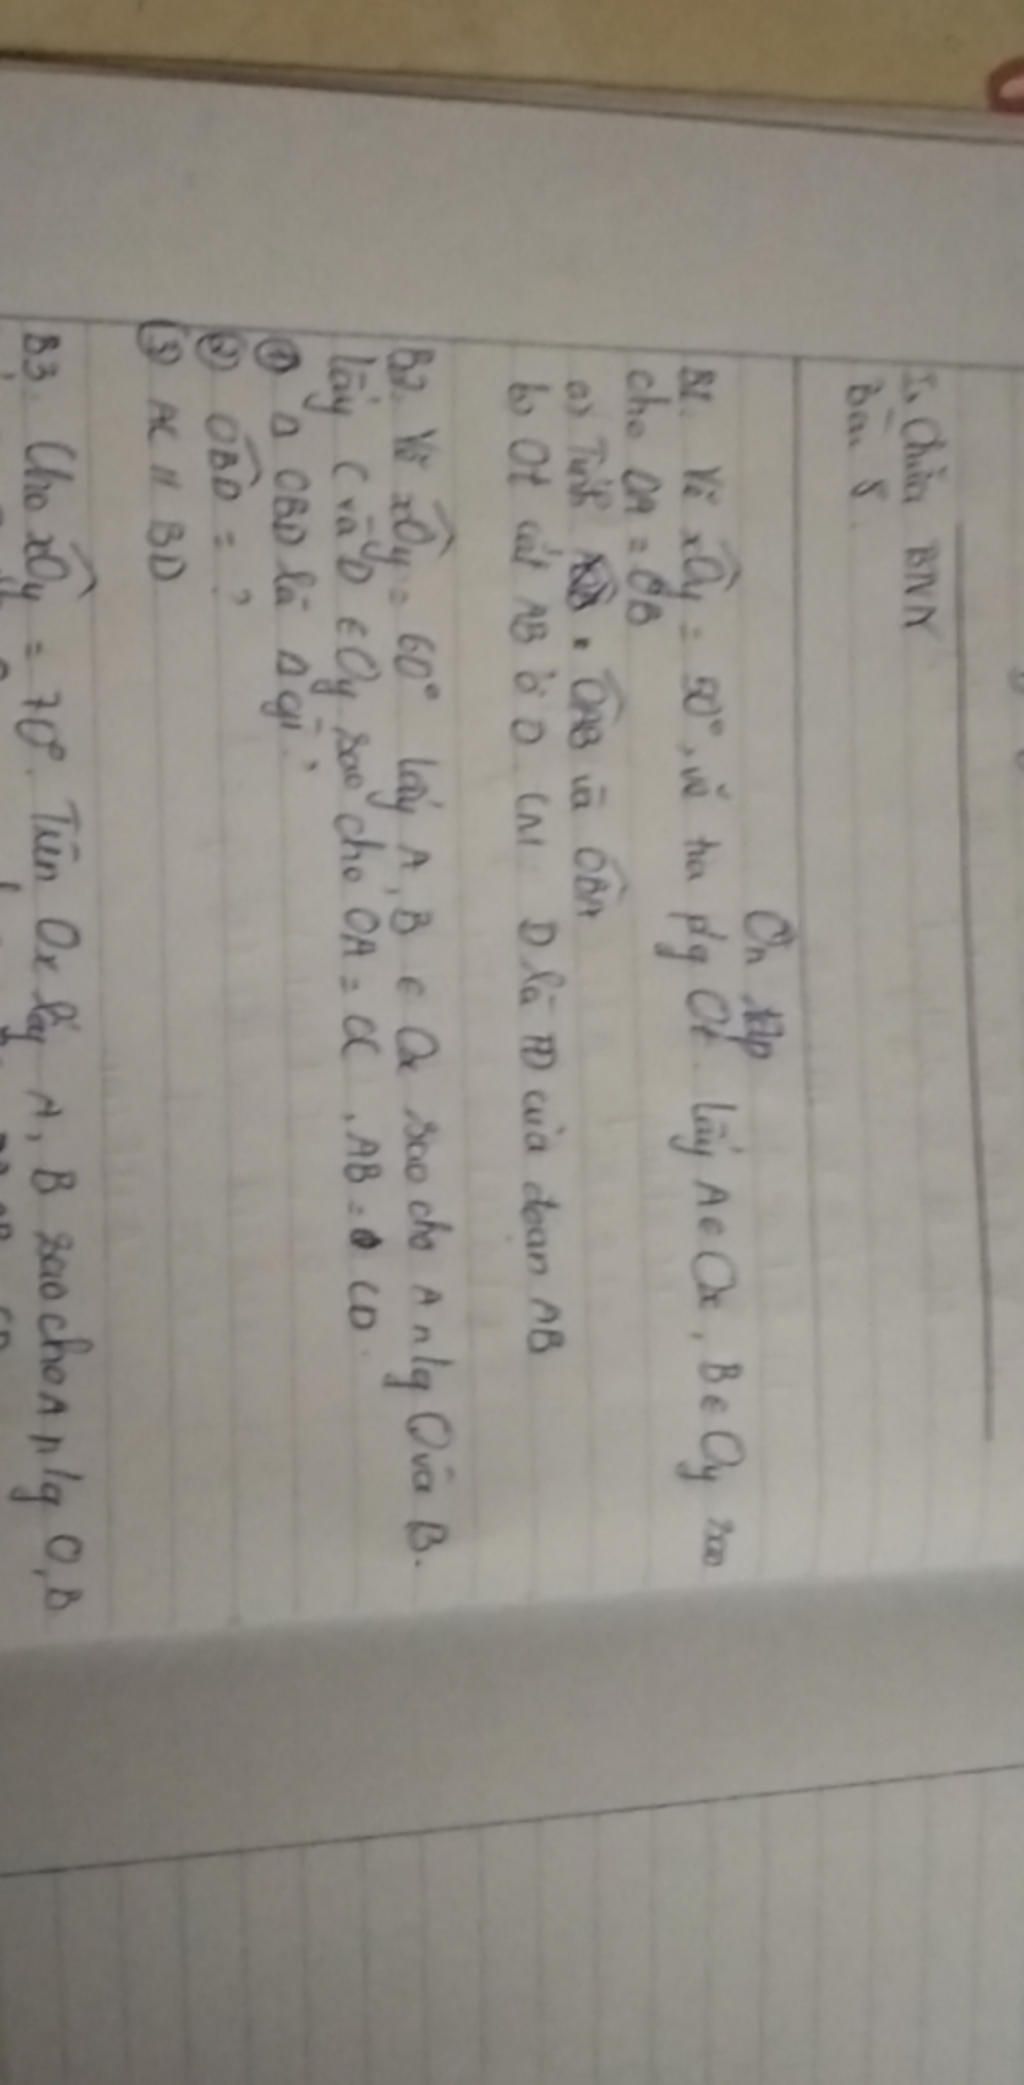 I, Chữa BNVN
Bài 8.
Ôn tập
B1. Vẽ xÔy = 50°, vẽ tia p/g Ot. Lấy A ∈ Ox, B ∈ Oy sao
cho OA = OB
a) Tính OAB và OBA
b) Ot cắt AB ở D. CM: D là TĐ của đoạn AB
B2. Vẽ xÔy = 60° lấy A, B ∈ Ox sao cho A n/g O và B.
lấy C và D ∈ Oy sao cho OA = OC, AB = CD.
① Δ OBD là Δ gì?
② OBD = ?
③ AC // BD
B3. Cho xÔy = 70°. Trên Ox lấy A, B sao cho A n/g O, B